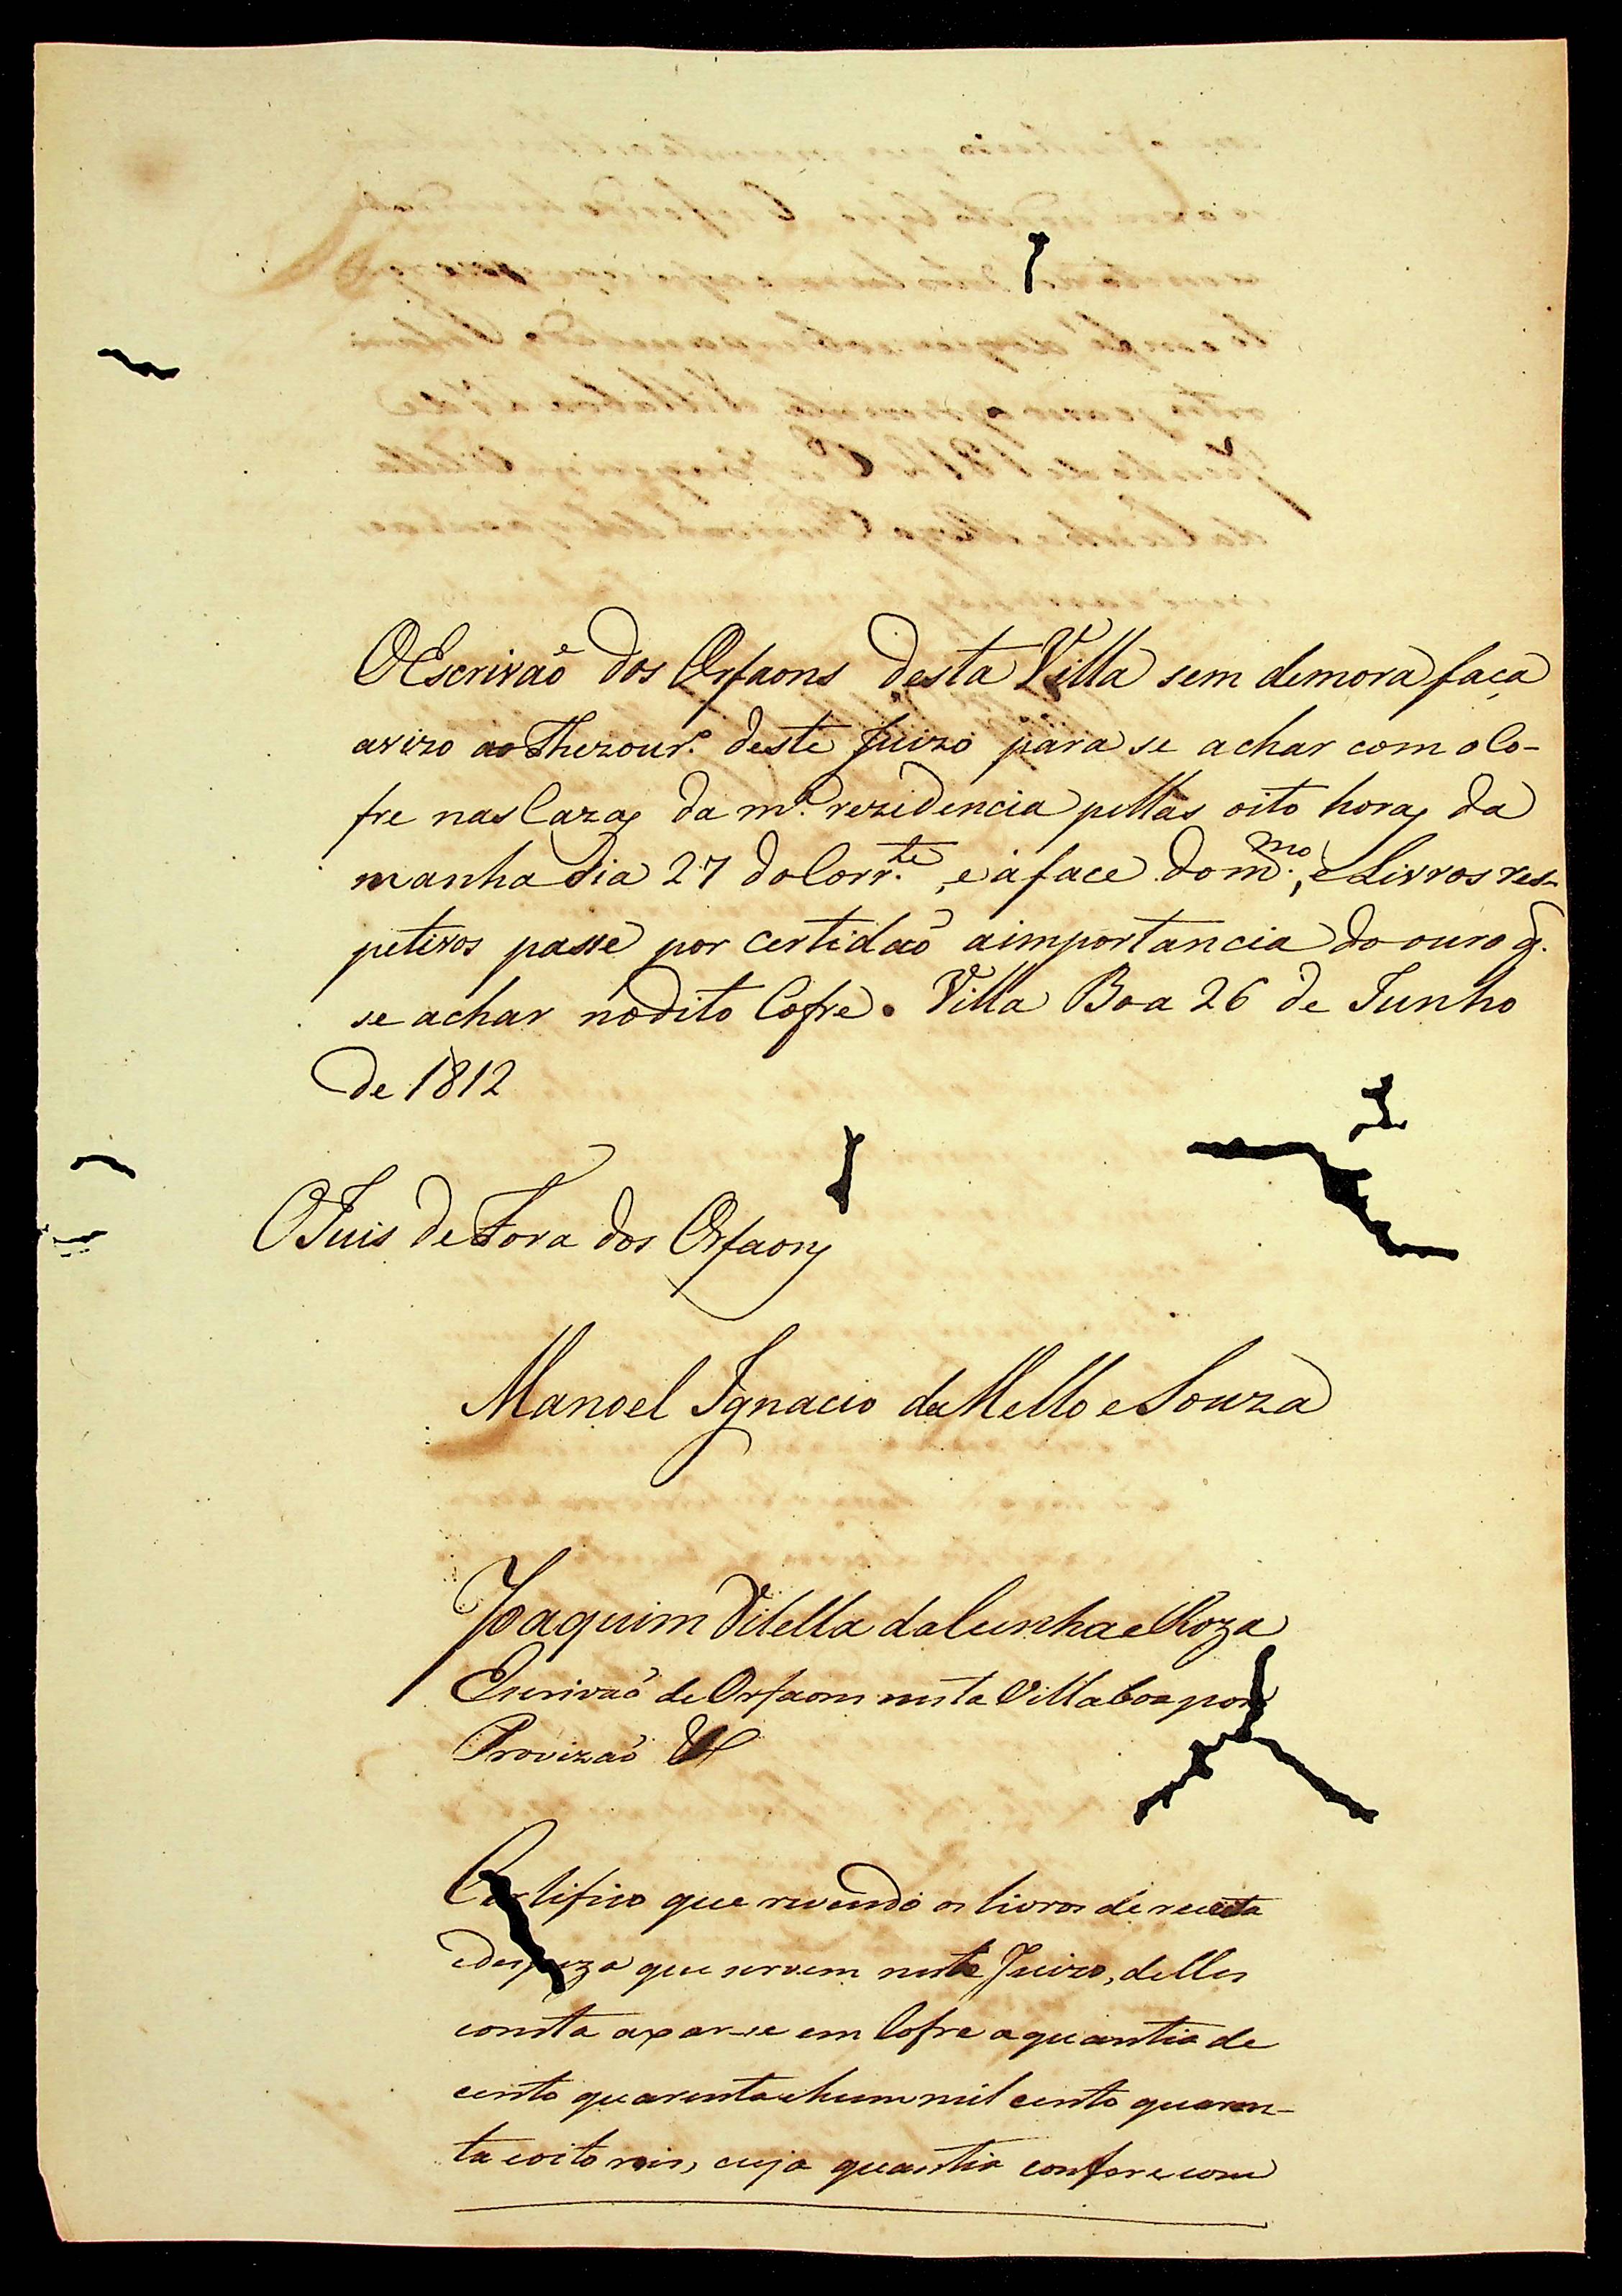 O Escrivaõ dos Orfaons desta Villa sem demora faça
avizo ao Thezour.º deste Juizo para se achar com o Co-
fre nas Cazas da m.ª rezidencia pellas oito horas da
manha dia 27 do Corr.te, e á face do m.mo, e Livros res-
petivos passe por certidaõ a importancia do ouro q.
se achar no dito Cofre. Villa Boa 26 de Junho
de 1812
O Juis de Fora dos Orfaons
Manoel Ignacio de Mello e Souza
Joaquim Vilella da Cunha e Roza
Escrivaõ de Orfaons nesta Villa boa por
Provizaõ &
Certifico que revendo os livros de receita
e despeza que servem neste Juizo, delles
consta axar-se em Cofre a quantia de
cento quarenta e hum mil cento quaren-
ta e oito reis, cuja quantia confere com